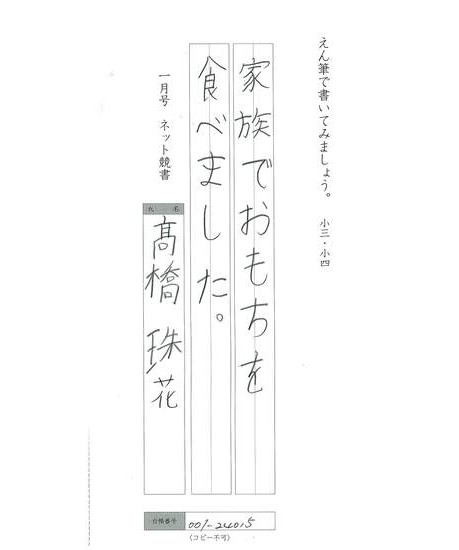 えん筆で書いてみましょう。 小三・小四
家族でおもちを
食べました。
一月号 ネット競書
氏名
髙橋 珠花
会員番号 001-24015
(コピー不可)